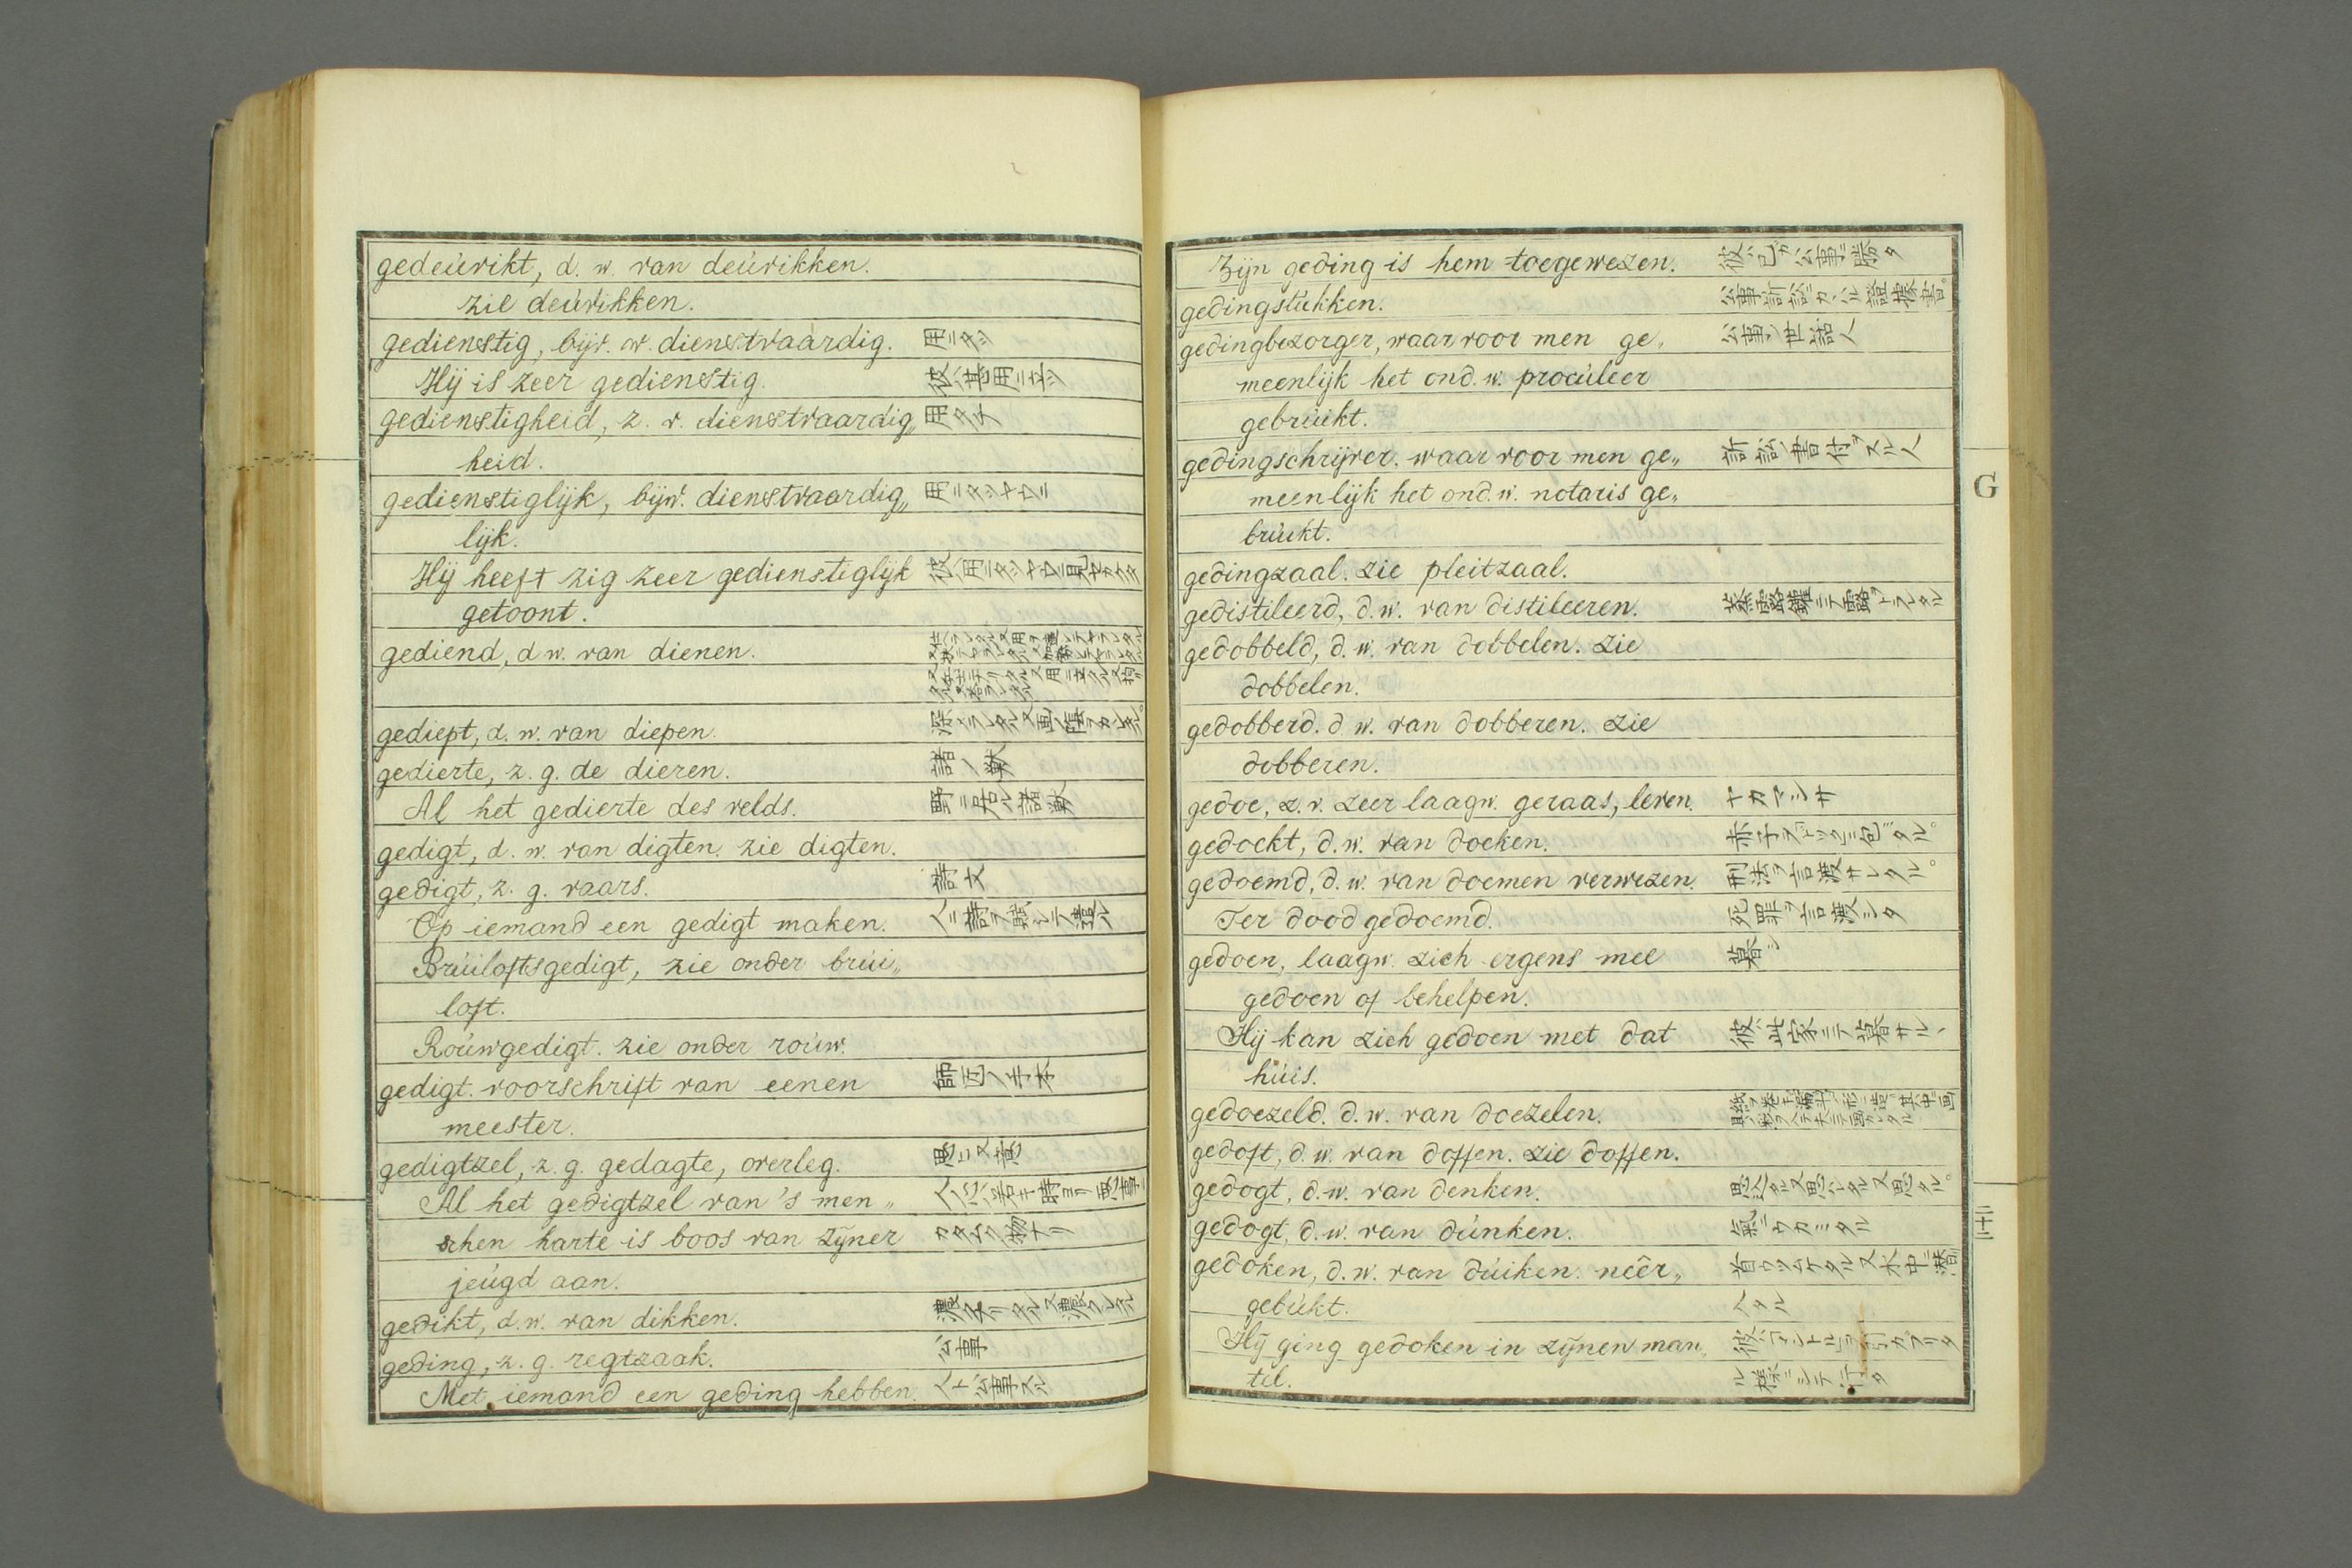 gedeúrikt, d. w. van deúrikken.
zie deúrikken.
gedienstig, bijv. w. dienstvaardig. 用ニタツ
Hij is zeer gedienstig. 彼ハ甚用ニ立ツ
gedienstigheid, z. v. dienstvaardig„ 用タチ
heid.
gedienstiglijk, bijw. dienstvaardig„ 用ニタツヤウニ
lijk.
Hij heeft zig zeer gedienstiglijk
getoont.
gediend, d w. van dienen.
gediept, d. w. van diepen.
gedierte, z. g. de dieren. 諸ノ獣
Al het gedierte des velds. 野ニ居ル諸獣
gedigt, d. w. van digten. zie digten.
gedigt, z. g. vaars. 詩文
Op iemand een gedigt maken. 人ニ詩ヲ賦シテ遣ル
Brúiloftsgedigt, zie onder brúi„
loft.
Roúwgedigt. zie onder roúw.
gedigt. voorschrift van eenen 師匠ノ手本
meester.
gedigtzel, z. g. gedagte, overleg. 思ヒ又意
Al het gedigtzel van 's men„ 人心ハ若キ時ヨリ悪事
schen harte is boos van zijner
jeúgd aan.
gedikt, d. w. van dikken.
geding, z. g. regtzaak. 公事
Met iemand een geding hebben. 人ト公事スル
Zijn geding is hem toegewezen. 彼ハ己ガ公事ニ勝タ
gedingstúkken. 公事訴訟ニカヽル證據書。
gedingbezorger, waar voor men ge„ 公事ノ世話人
meenlijk het ond. w. procúleer
gebrúikt.
gedingschrijver. waar voor men ge„ 訴訟ノ書付ヲスル人
meenlijk het ond. w. notaris ge„
brúikt.
gedingzaal. zie pleitzaal.
gedistileerd, d. w. van distileeren. 蒸露罐ニテ露ヲトラレタル
gedobbeld, d. w. van dobbelen. zie
dobbelen.
gedobberd. d w. van dobberen. zie
dobberen.
gedoe, z. v. zeer laagw. geraas, leven. ヤカマシサ
gedoekt, d. w. van doeken.
gedoemd, d. w. van doemen verwezen. 刑法ヲ言渡サレタル。
Ter dood gedoemd. 死罪ヲ言渡シタ
gedoen, laagw. zich ergens mee 暮シ
gedoen of behelpen.
Hij kan zich gedoen met dat 彼ハ此家ニテ暮サルヽ
húis.
gedoezeld. d. w. van doezelen.
gedoft, d. w. van doffen. zie doffen.
gedogt, d. w. van denken.
gedogt, d. w. van dúnken.氣ニウカミタル
gedoken, d. w. van dúiken. neêr„ 首ウツムケタル又水中ニ潜
gebúkt. 入タル
Hij ging gedoken in zijnen man„
tel. ル様ニシテ行タ
G